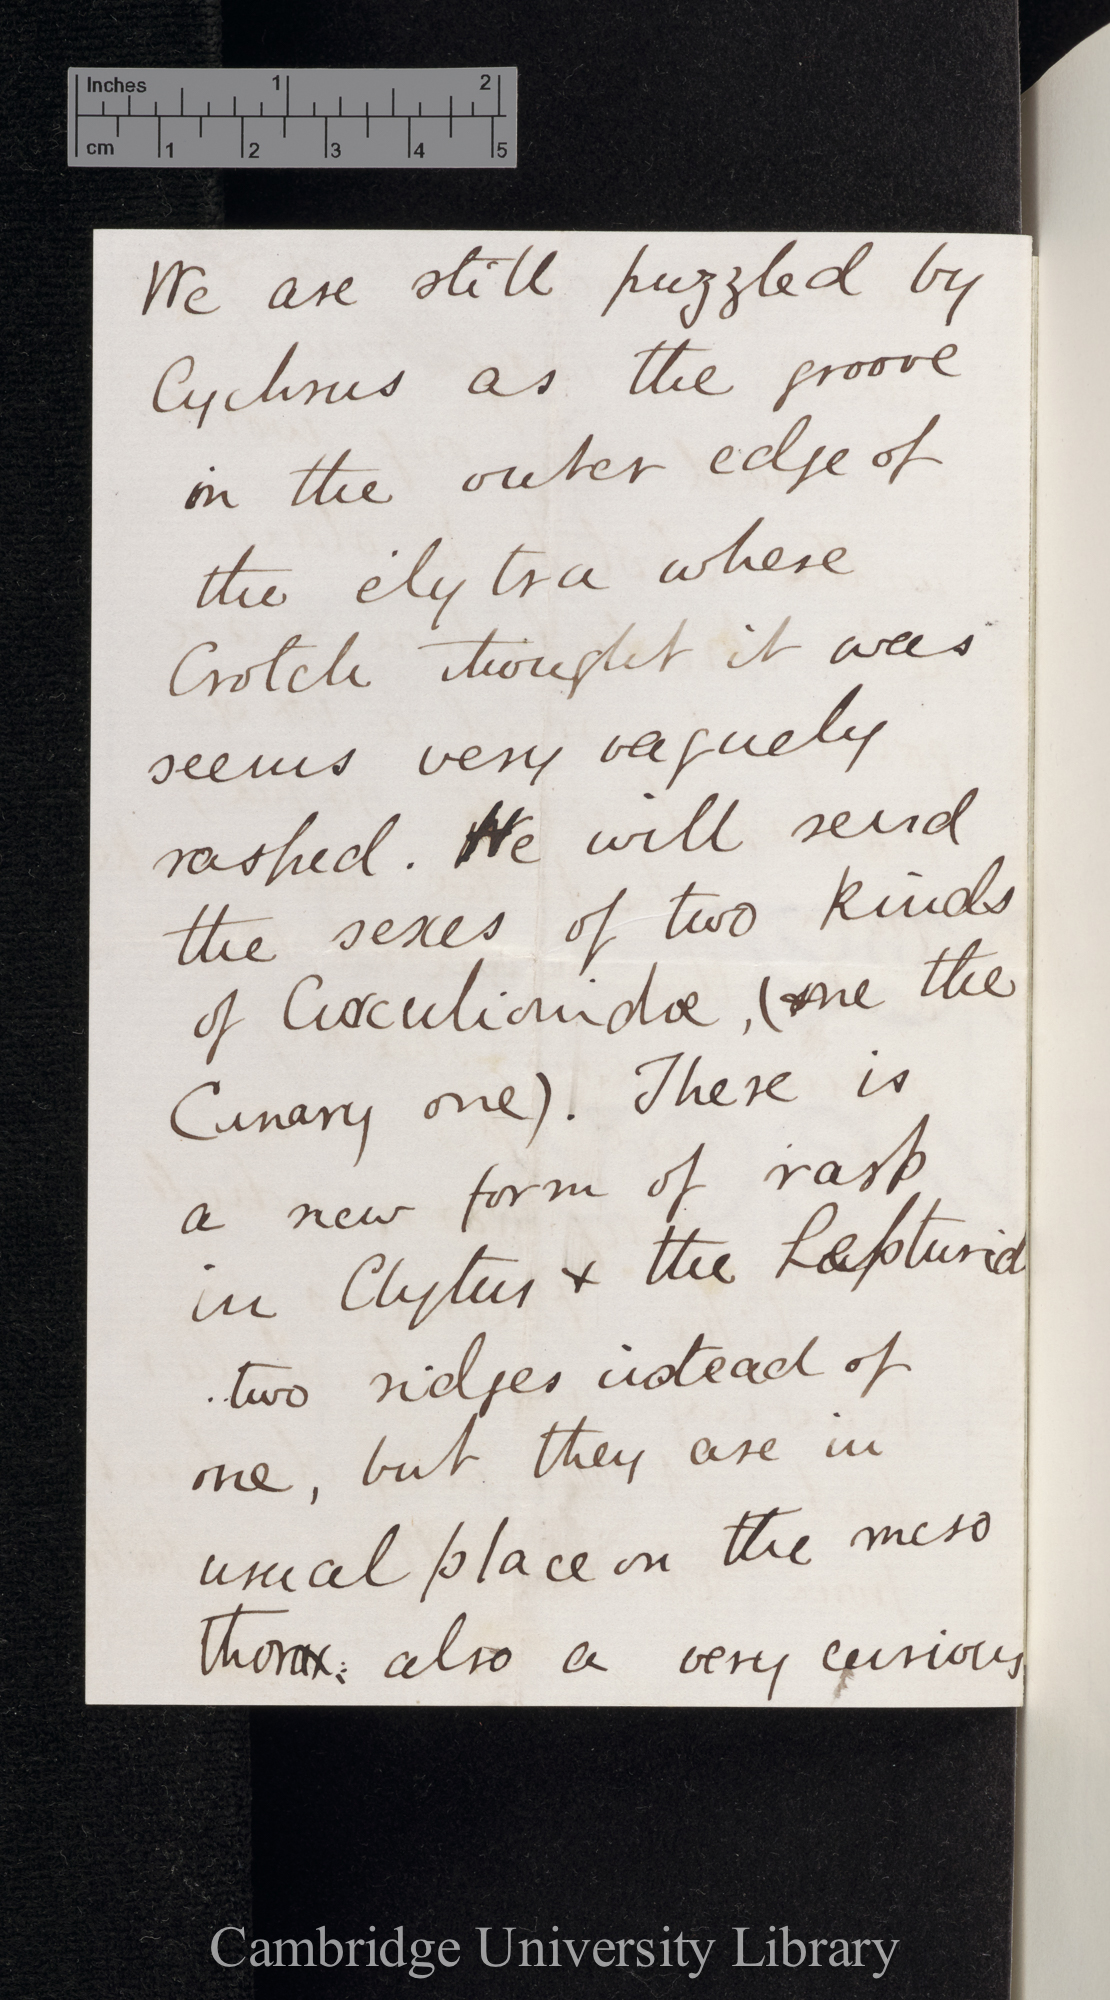 Inches 1 2
cm 1 2 3 4 5
We are still puzzled by
Cychrus as the groove
in the outer edge of
the elytra where
Crotch thought it was
seems very vaguely
rasped. We will send
the sexes of two kinds
of Curculionidæ, (one the
Cunary one). There is
a new form of rasp
in Clytus & the Lepturid
two ridges instead of
one, but they are in
usual place on the meso
thorax: also a very curious
Cambridge University Library